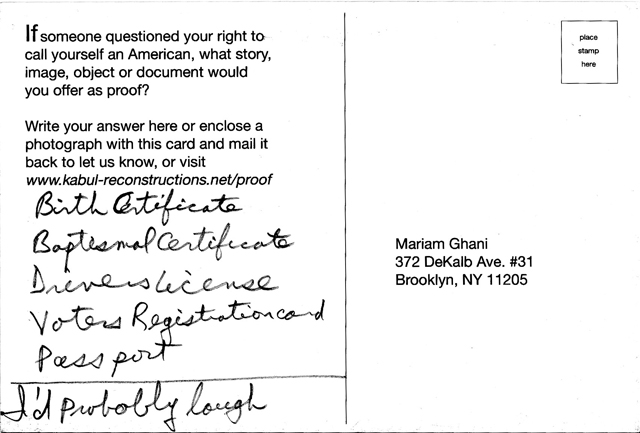 If someone questioned your right to
call yourself an American, what story,
image, object or document would
you offer as proof?
Write your answer here or enclose a
photograph with this card and mail it
back to let us know, or visit
www.kabul-reconstructions.net/proof
Birth Certificate
Baptismal Certificate
Drivers License
Voters Registration card
Passport
I'd probably laugh
place
stamp
here
Mariam Ghani
372 DeKalb Ave. #31
Brooklyn, NY 11205